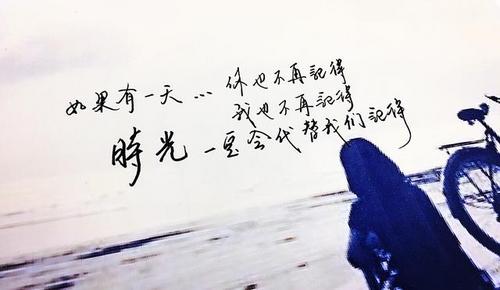 如果有一天...你也不再記得
我也不再記得
時光一定会代替我们記得